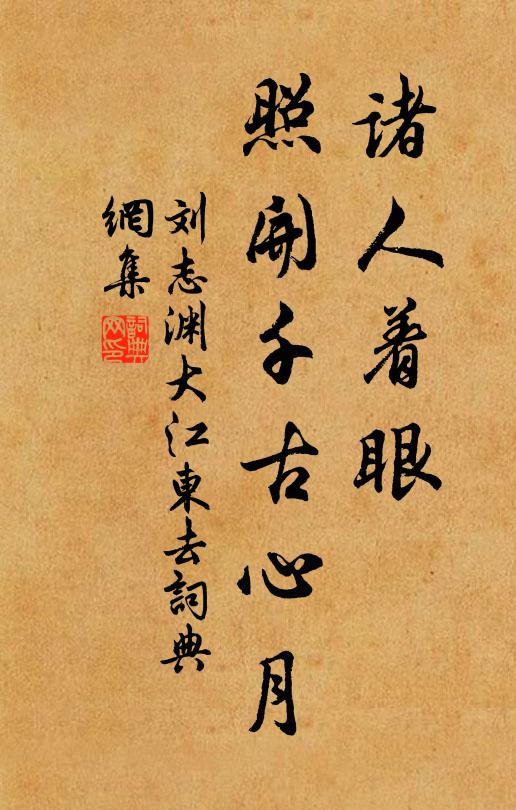 諸人着眼
照開千古心月
刘志渊大江東去詞典
網集
詞典
网印